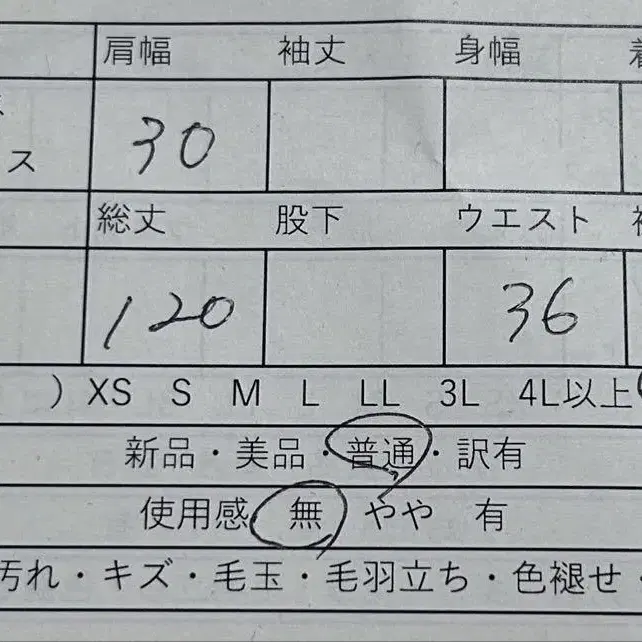 肩幅 袖丈 身幅 着
ス 30
総丈 股下 ウエスト
120 36
) XS S M L LL 3L 4L以上
新品・美品・普通・訳有
使用感 無 やや 有
汚れ・キズ・毛玉・毛羽立ち・色褪せ・